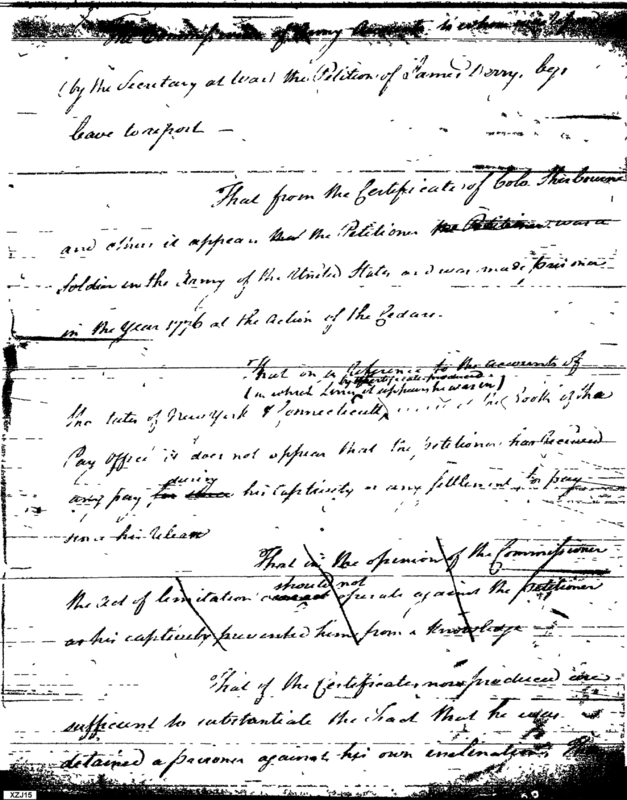 The Commissioner of Army Accounts to whom was referred
(by the Secretary at War) the Petition of James Derry, begs
leave to report —
That from the Certificates of Colo. Sherbourne
and others it appears that the Petitioner the Petitioner was a
Soldier in the Army of the United States and was made prisoner
in the Year 1776 at the action of the Cedars.
That on a reference to the accounts of
by the Certificate produced
(in which Line it appears he was in)
the Lines of New York & Connecticut at the Books of the
Pay Office it does not appear that the petitioner has received
during
any pay for his captivity or any settlement to pay
since his release
That in the opinion of the Commissioner
should not
the act of limitation operate against the petitioner
as his captivity prevented him from a knowledge
That if the Certificates now produced are
sufficient to substantiate the Fact that he was
detained a prisoner against his own inclination The
XZJ15